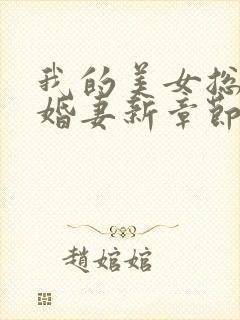 我的美女总
婚妻新章节
趙婠婠